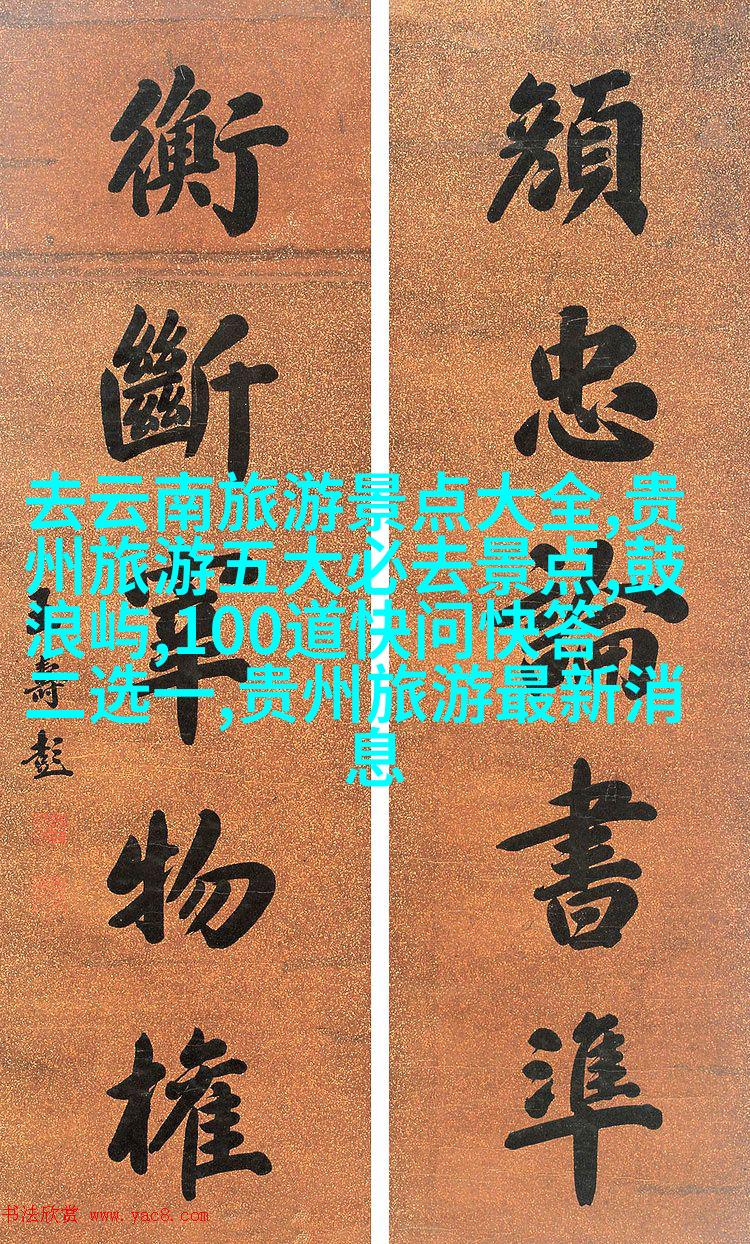 忠
書
準
衡
斷
物
權
壽彭
去云南旅游景点大全,贵
州旅游五大必去景点,鼓
浪屿,100道快问快答
二选一,贵州旅游最新消
息
书法欣赏 www.yac8.com